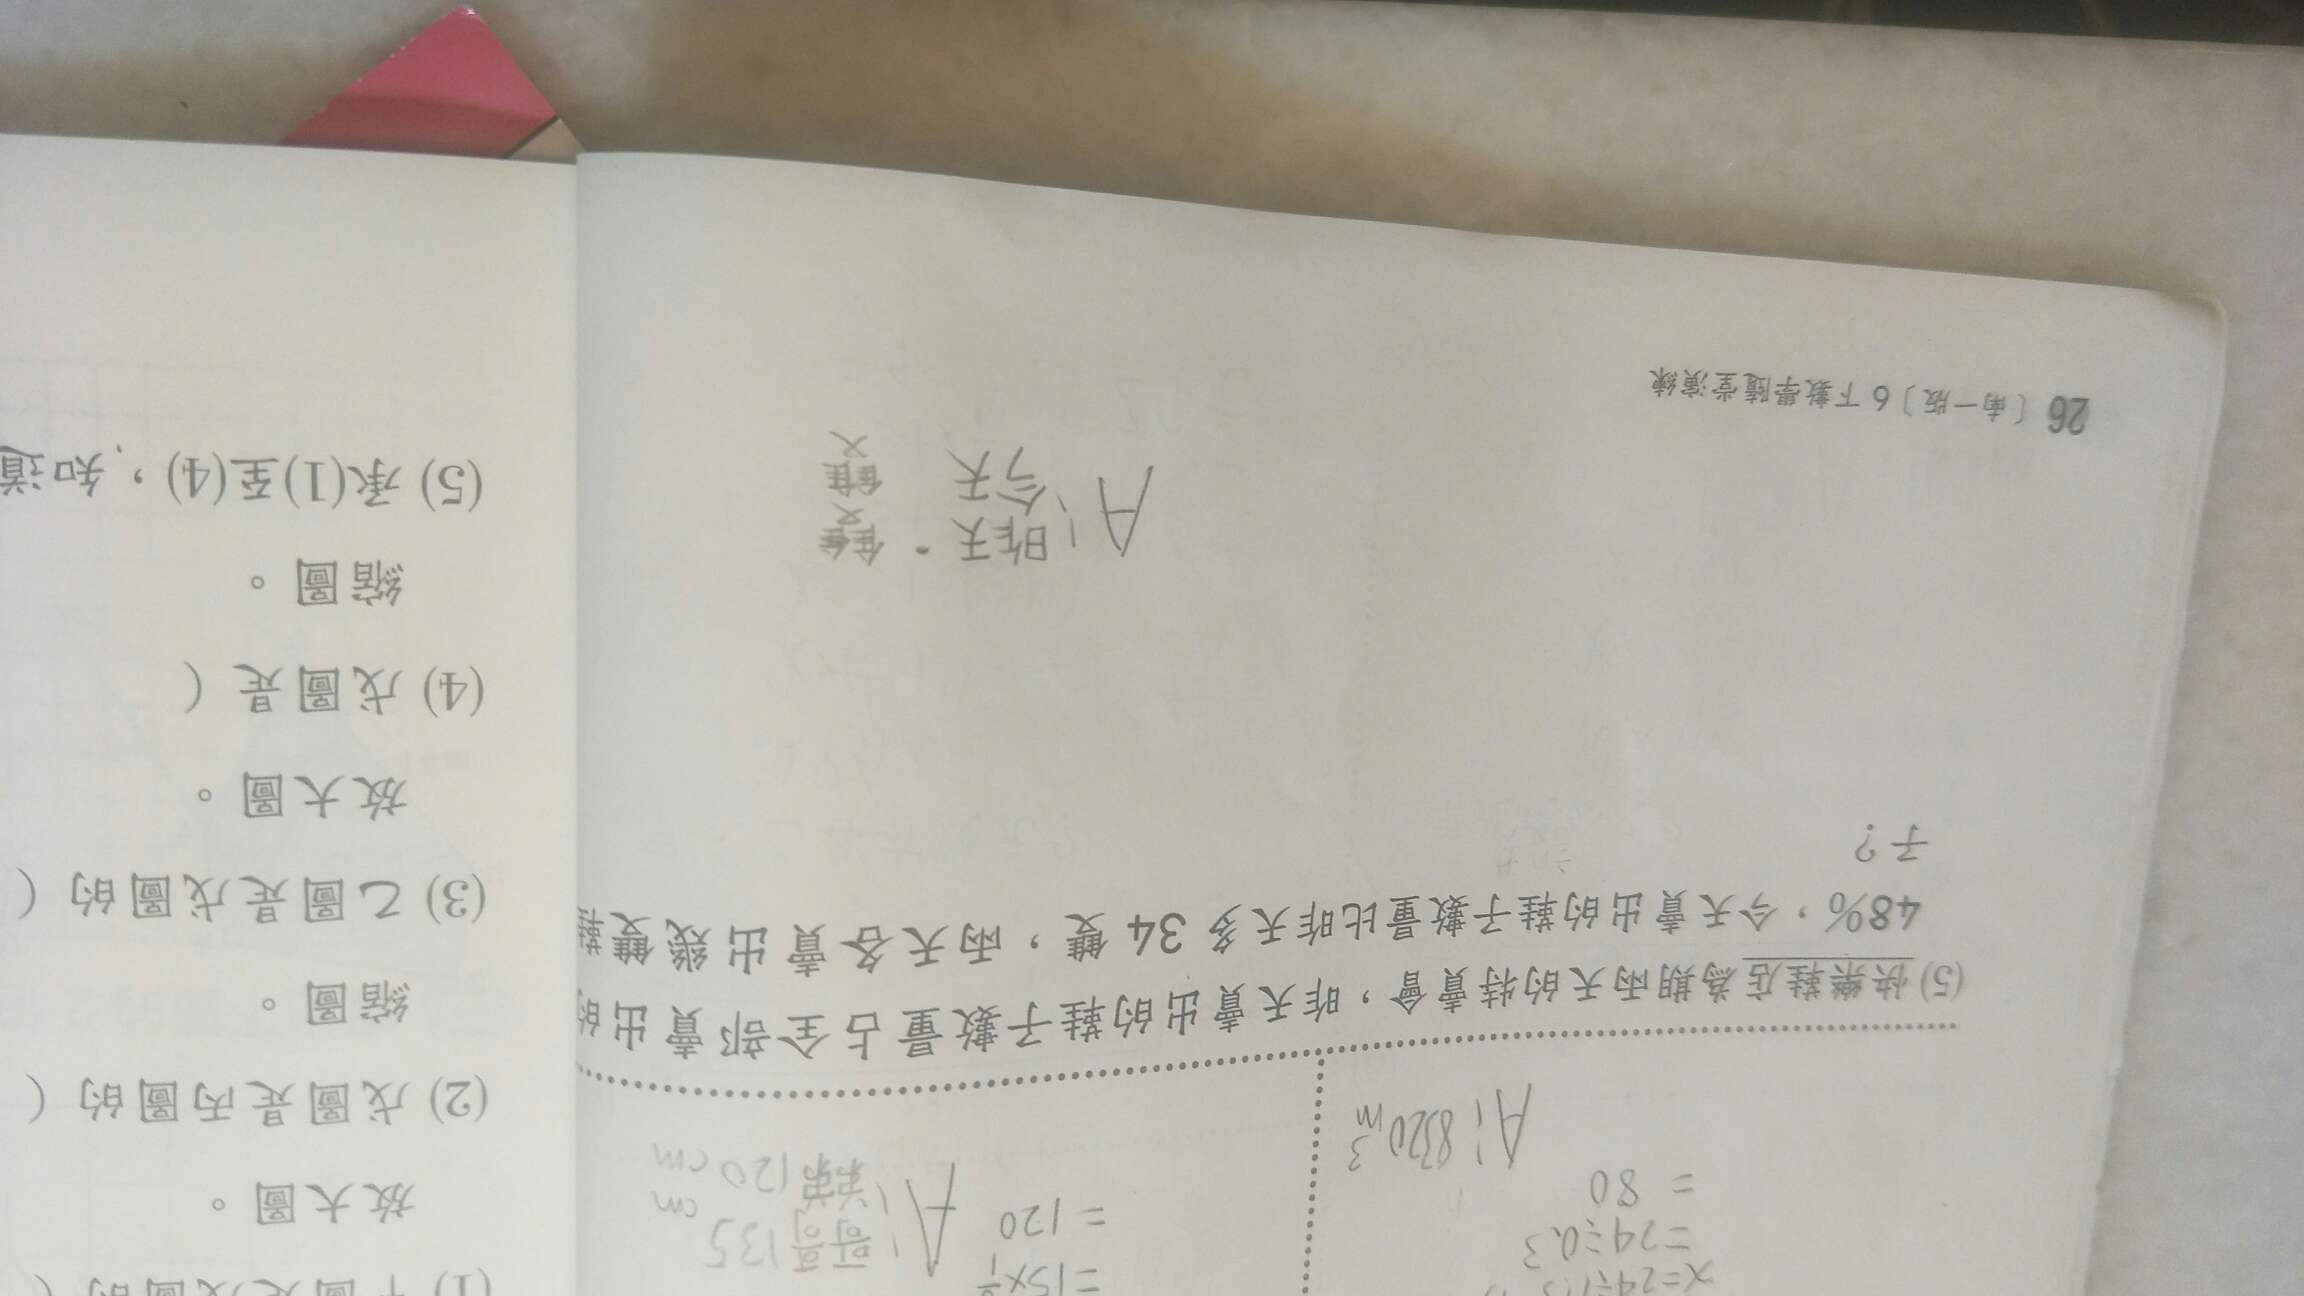 =15×
=120
A:哥哥135cm
弟弟120cm
=24÷0.3
=80
A:8320m³
(5)快樂鞋店為期兩天的特賣會，昨天賣出的鞋子數量占全部賣出的
48%，今天賣出的鞋子數量比昨天多34雙，兩天各賣出幾雙鞋
子？
A:昨天 雙
今天 雙
26〔南一版〕6下數學隨堂演練
放大圖。
(2)戊圖是丙圖的(
縮圖。
(3)乙圖是戊圖的(
放大圖。
(4)戊圖是(
縮圖。
(5)承(1)至(4)，知道